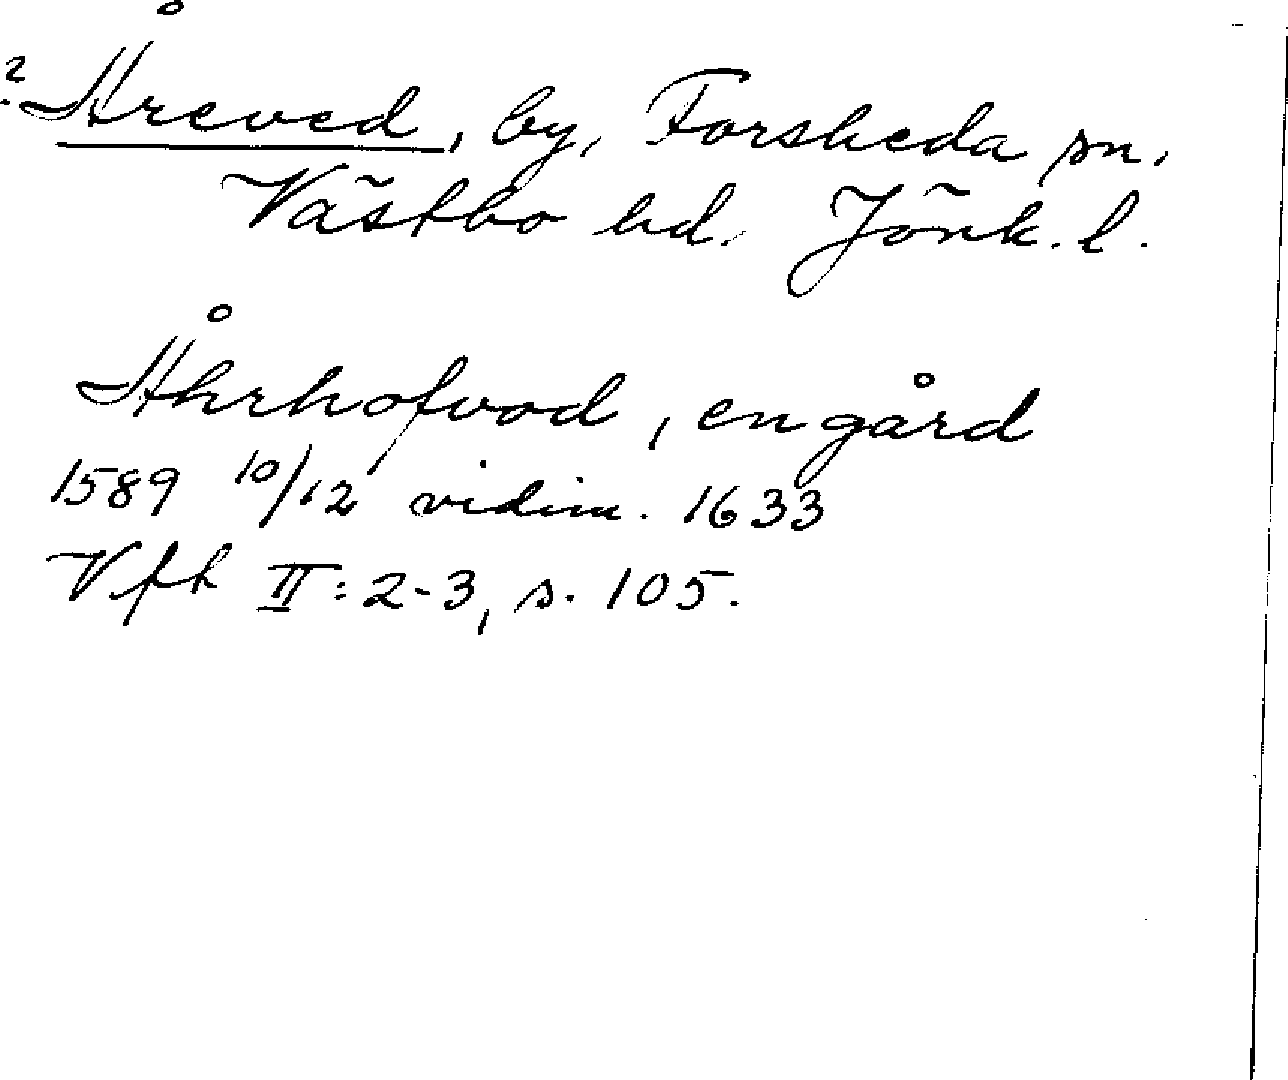 ? Åreved, by, Forsheda sn.
Västbo hd. Jönk. l.
Åhrhofvod, en gård
1589 10/12 vidim. 1633
Vfh II: 2-3, s. 105.